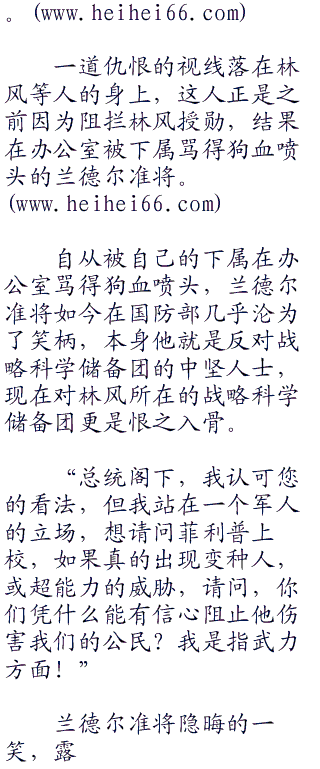 。(www.heihei66.com)
一道仇恨的视线落在林
风等人的身上，这人正是之
前因为阻拦林风授勋，结果
在办公室被下属骂得狗血喷
头的兰德尔准将。
(www.heihei66.com)
自从被自己的下属在办
公室骂得狗血喷头，兰德尔
准将如今在国防部几乎沦为
了笑柄，本身他就是反对战
略科学储备团的中坚人士，
现在对林风所在的战略科学
储备团更是恨之入骨。
“总统阁下，我认可您
的看法，但我站在一个军人
的立场，想请问菲利普上
校，如果真的出现变种人，
或超能力的威胁，请问，你
们凭什么能有信心阻止他伤
害我们的公民？我是指武力
方面！”
兰德尔准将隐晦的一
笑，露